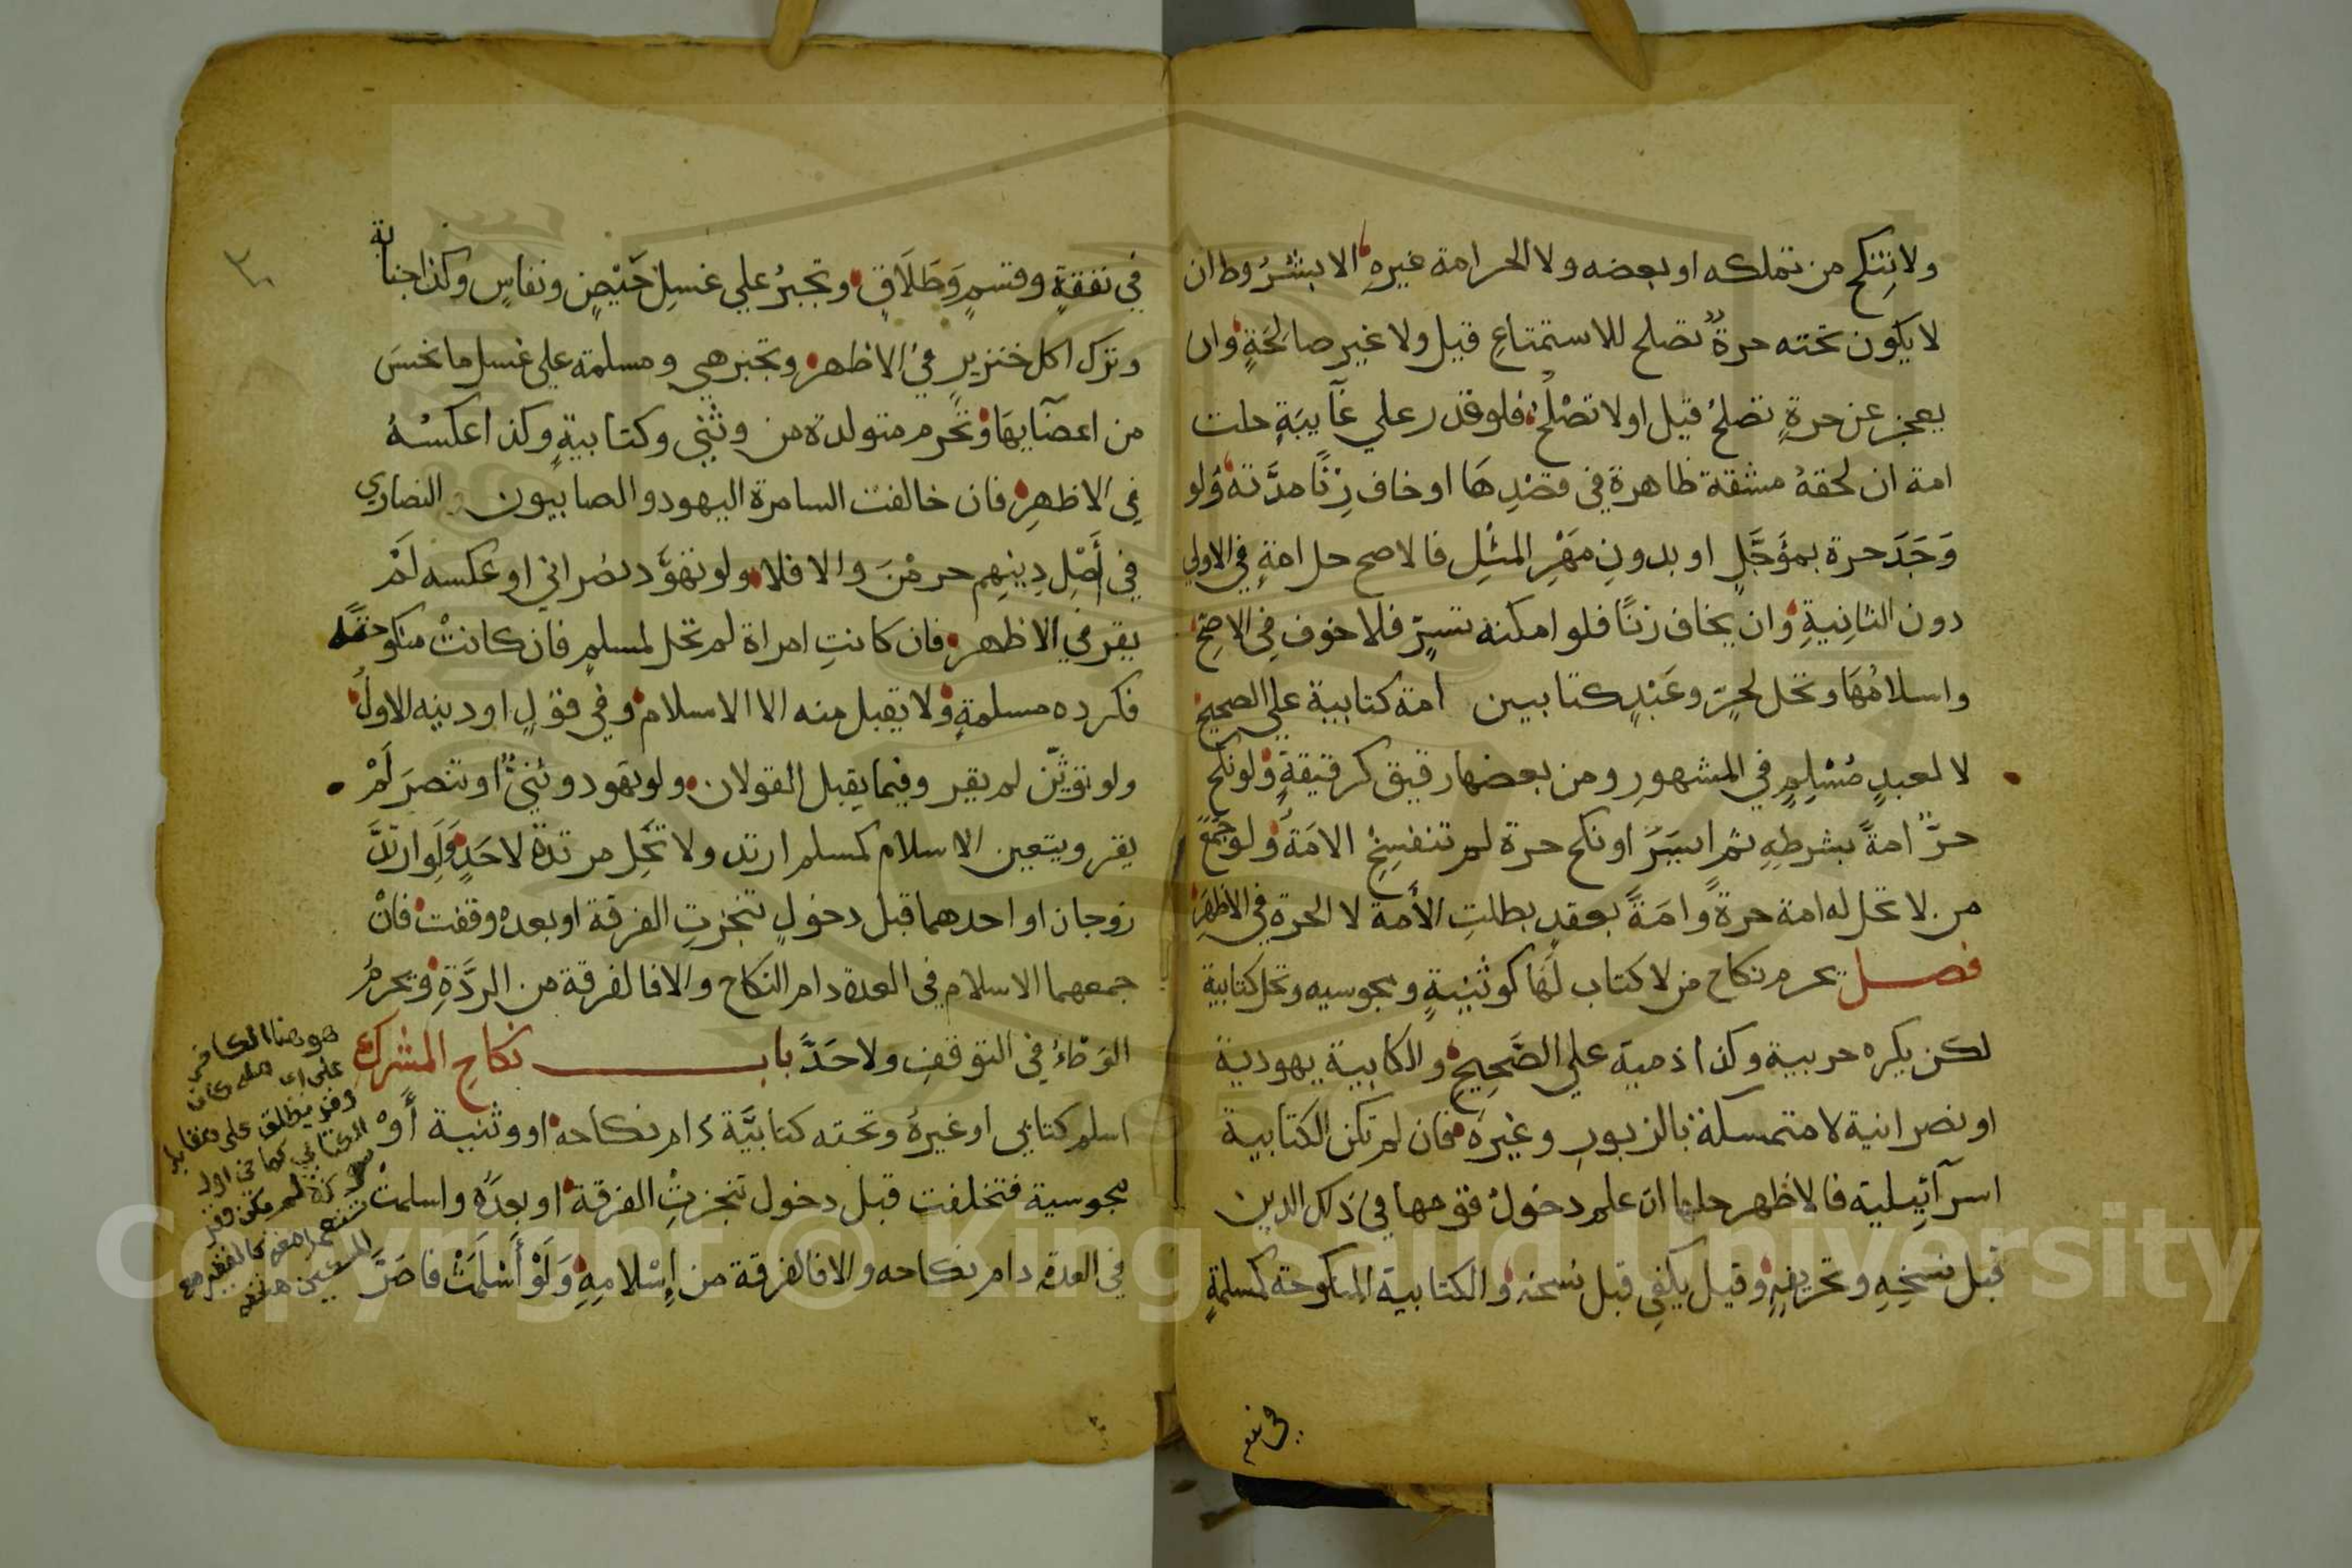 ولا تنكح من تملكه او بعضه ولا الحر امة غيره الا بشروط ان
لا يكون تحته حرة تصلح للاستمتاع قيل ولا غير صالحة وان
يعجز عن حرة تصلح قيل او لا تصلح فلو قدر علي غآيبة حلت
امة ان لحقه مشقة ظاهرة في قصدها او خاف زنا مدته ولو
وجد حرة بمؤجل او بدون مهر المثل فالاصح حل امة في الاولي
دون الثانية وان يخاف زنا فلو امكنه تسر فلا خوف في الاصح
واسلامها وتحل لحر وعبد كتابيين امة كتابية علي الصحيح
لا لعبد مسلم في المشهور ومن بعضها رقيق كرقيقة ولو نكح
حر امة بشرطه ثم ايسر او نكح حرة لم تنفسخ الامة ولو جمع
من لا تحل له امة حرة وامة بعقد بطلت الأمة لا الحرة في الاظهر
فصل يحرم نكاح من لا كتاب لها كوثنية ومجوسيه وتحل كتابية
لكن يكره حربية وكذا ذمية علي الصحيح والكابية يهودية
او نصرانية لا متمسكة بالزبور وغيره فان لم تكن الكتابية
اسرآئيلية فالاظهر حلها ان علم دخول قومها في ذلك الدين
قبل نسخه وتحريفه وقيل يكفي قبل نسخه والكتابية المنكوحة كمسلمة
في نفقة وقسم وطلاق وتجبر علي غسل حيض ونفاس وكذا جنابة
وترك اكل خنزير في الاظهر وتجبر هي ومسلمة علي غسل ما نجس
من اعضآيها وتحرم متولدة من وثني وكتابية وكذا عكسه
في الاظهر فان خالفت السامرة اليهود والصابيون النصاري
في أصل دينهم حرمن والا فلا ولو تهود نصراني او عكسه لم
يقر في الاظهر فان كانت امراة لم تحل لمسلم فان كانت منكوحته
فكرده مسلمة ولا يقبل منه الا الاسلام وفي قول او دينه الاول
ولو توثن لم يقر وفيما يقبل القولان ولو تهود وثني او تنصر لم
يقر ويتعين الاسلام كمسلم ارتد ولا تحل مرتدة لاحد ولو ارتد
زوجان او احدهما قبل دخول تنجزت الفرقة او بعده وقفت فان
جمعهما الاسلام في العدة دام النكاح والا فالفرقة من الردة وتحرم
الوطء في التوقف ولا حد باب نكاح المشرك
اسلم كتابي او غيره وتحته كتابية دام نكاحه او وثنية أو
مجوسية فتخلفت قبل دخول تنجزت الفرقة او بعده واسلمت
في العدة دام نكاحه والا فالفرقة من إسلامه ولو أسلمت فاصر
هو هنا الكافر
وقد يطلق على مقابل
الكتابي كما في اول
في نفقة
Copyright © King Saud University